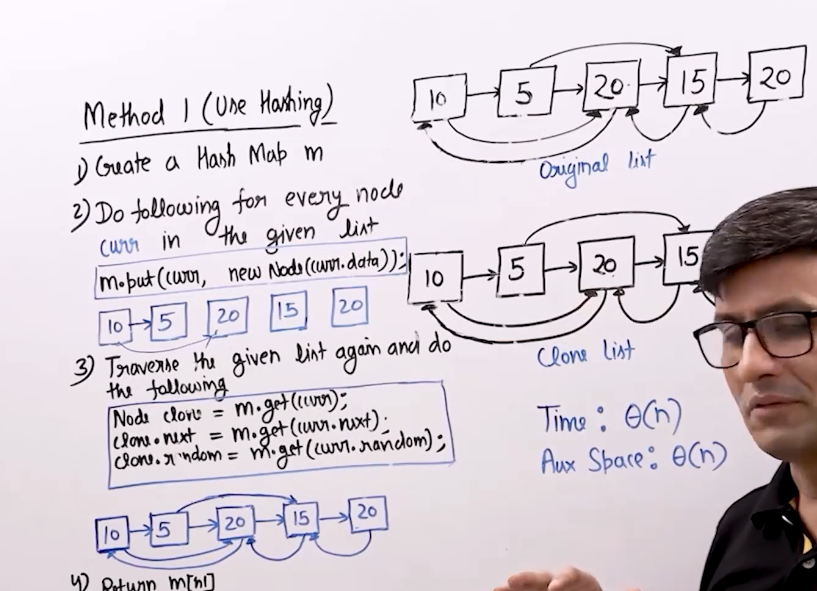 Method 1 (Use Hashing)
1) Create a Hash Map m
2) Do following for every node
curr in the given list
m.put(curr, new Node(curr.data));
10 5 20 15 20
3) Traverse the given list again and do
the following
Node clone = m.get(curr);
clone.next = m.get(curr.next);
clone.random = m.get(curr.random);
10 5 20 15 20
4) Return m[h1]
10 5 20 15 20
Original list
10 5 20 15
Clone list
Time: θ(n)
Aux Space: θ(n)